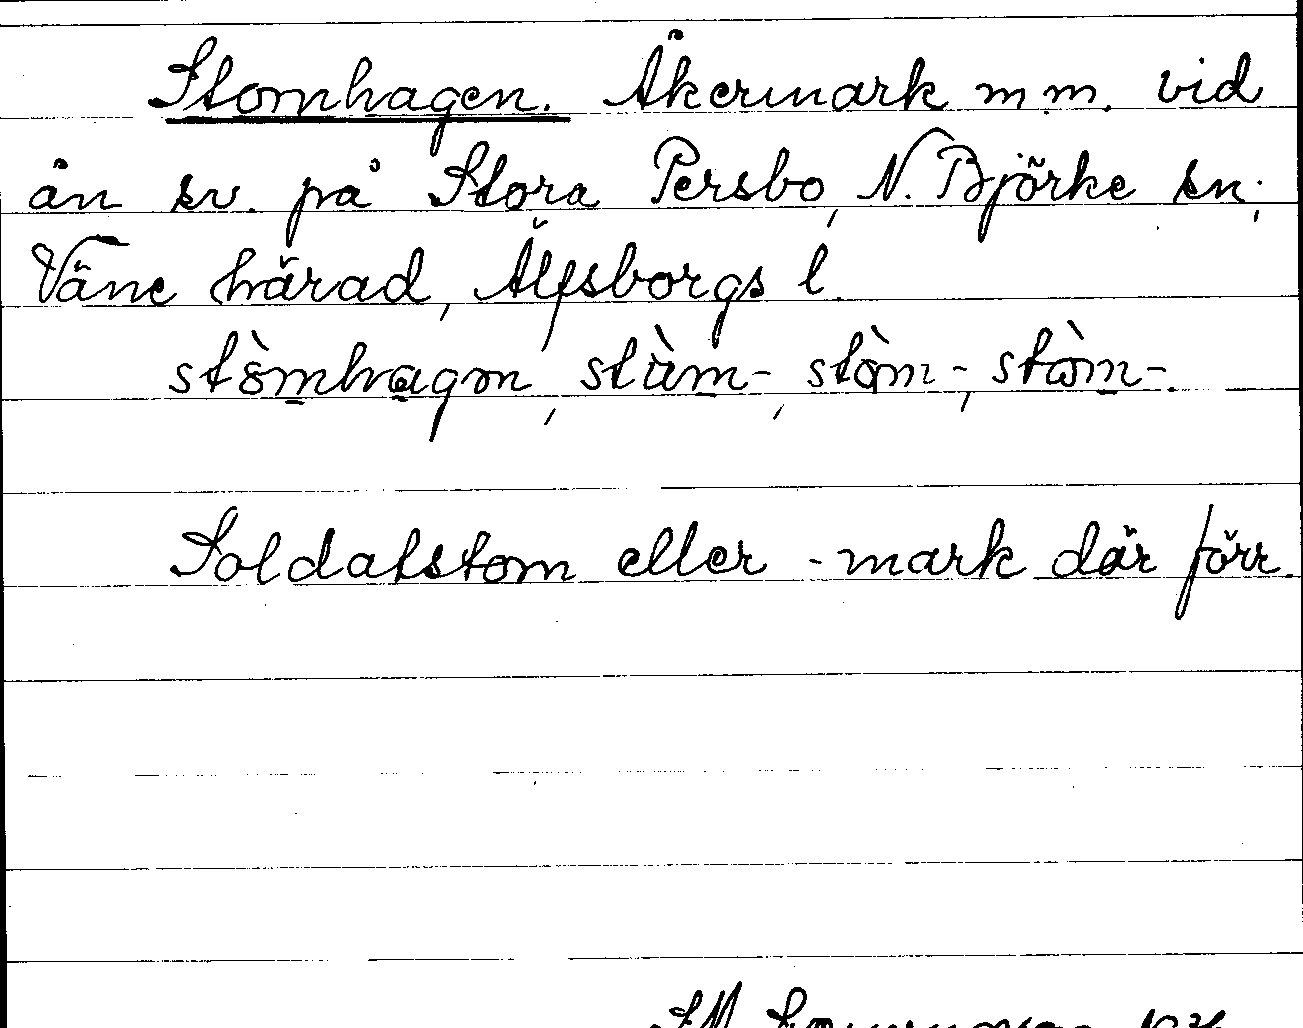 Stomhagen. Åkermark m m. vid
ån sv. på Stora Persbo, N. Björke sn,
Väne härad, Älfsborgs l.
stòmhagon, stùm-, stòm-, stòm-.
Soldatstom eller -mark där förr.